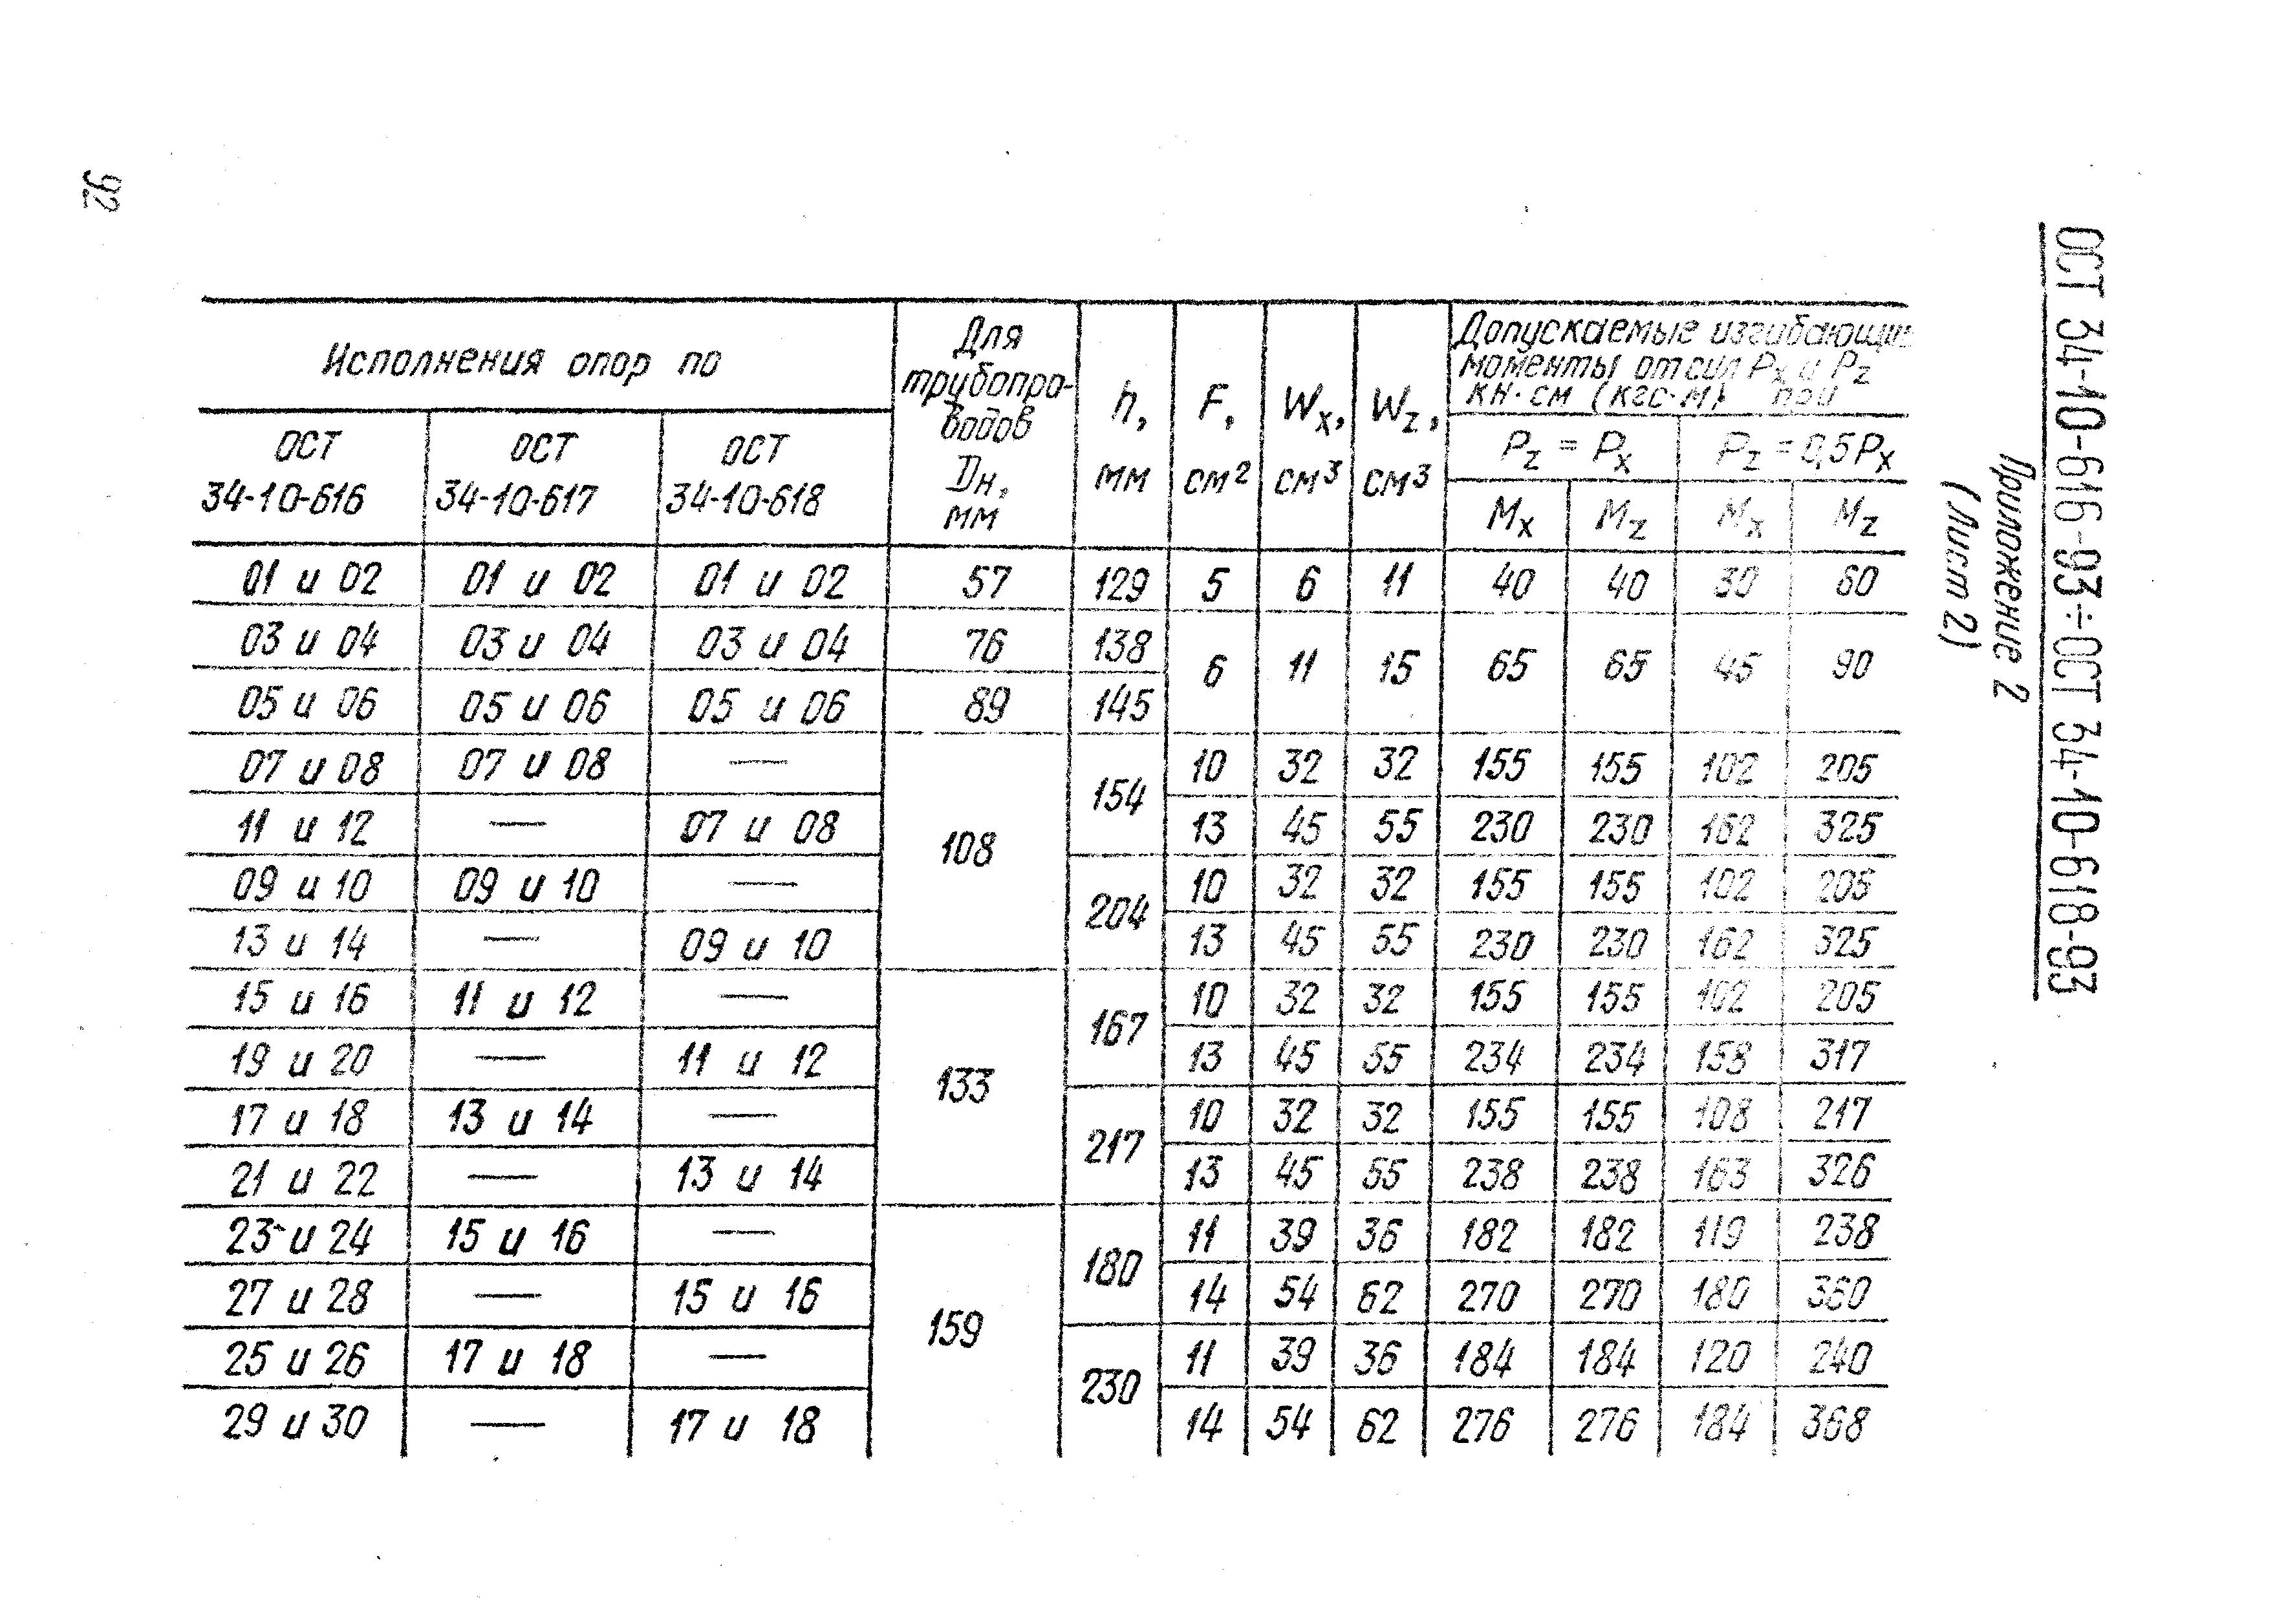 92
ОСТ 34-10-616-93÷ОСТ 34-10-618-93
Приложение 2
(Лист 2)
Исполнения опор по
ОСТ 34-10-616
ОСТ 34-10-617
ОСТ 34-10-618
Для
трубопро-
водов
Dн,
мм
h, мм
F, см²
Wx, см³
Wz, см³
Допускаемые изгибающие
моменты от сил Px и Pz
кН·см (кгс·м) при
Pz = Px
Pz = 0,5Px
Mx Mz Mx Mz
01 и 02 01 и 02 01 и 02 57 129 5 6 11 40 40 30 60
03 и 04 03 и 04 03 и 04 76 138 6 11 15 65 65 45 90
05 и 06 05 и 06 05 и 06 89 145
07 и 08 07 и 08 — 108 154 10 32 32 155 155 102 205
11 и 12 — 07 и 08 13 45 55 230 230 162 325
09 и 10 09 и 10 — 204 10 32 32 155 155 102 205
13 и 14 — 09 и 10 13 45 55 230 230 162 325
15 и 16 11 и 12 — 133 167 10 32 32 155 155 102 205
19 и 20 — 11 и 12 13 45 55 234 234 158 317
17 и 18 13 и 14 — 217 10 32 32 155 155 108 217
21 и 22 — 13 и 14 13 45 55 238 238 163 326
23 и 24 15 и 16 — 159 180 11 39 36 182 182 119 238
27 и 28 — 15 и 16 14 54 62 270 270 180 360
25 и 26 17 и 18 — 230 11 39 36 184 184 120 240
29 и 30 — 17 и 18 14 54 62 276 276 184 368